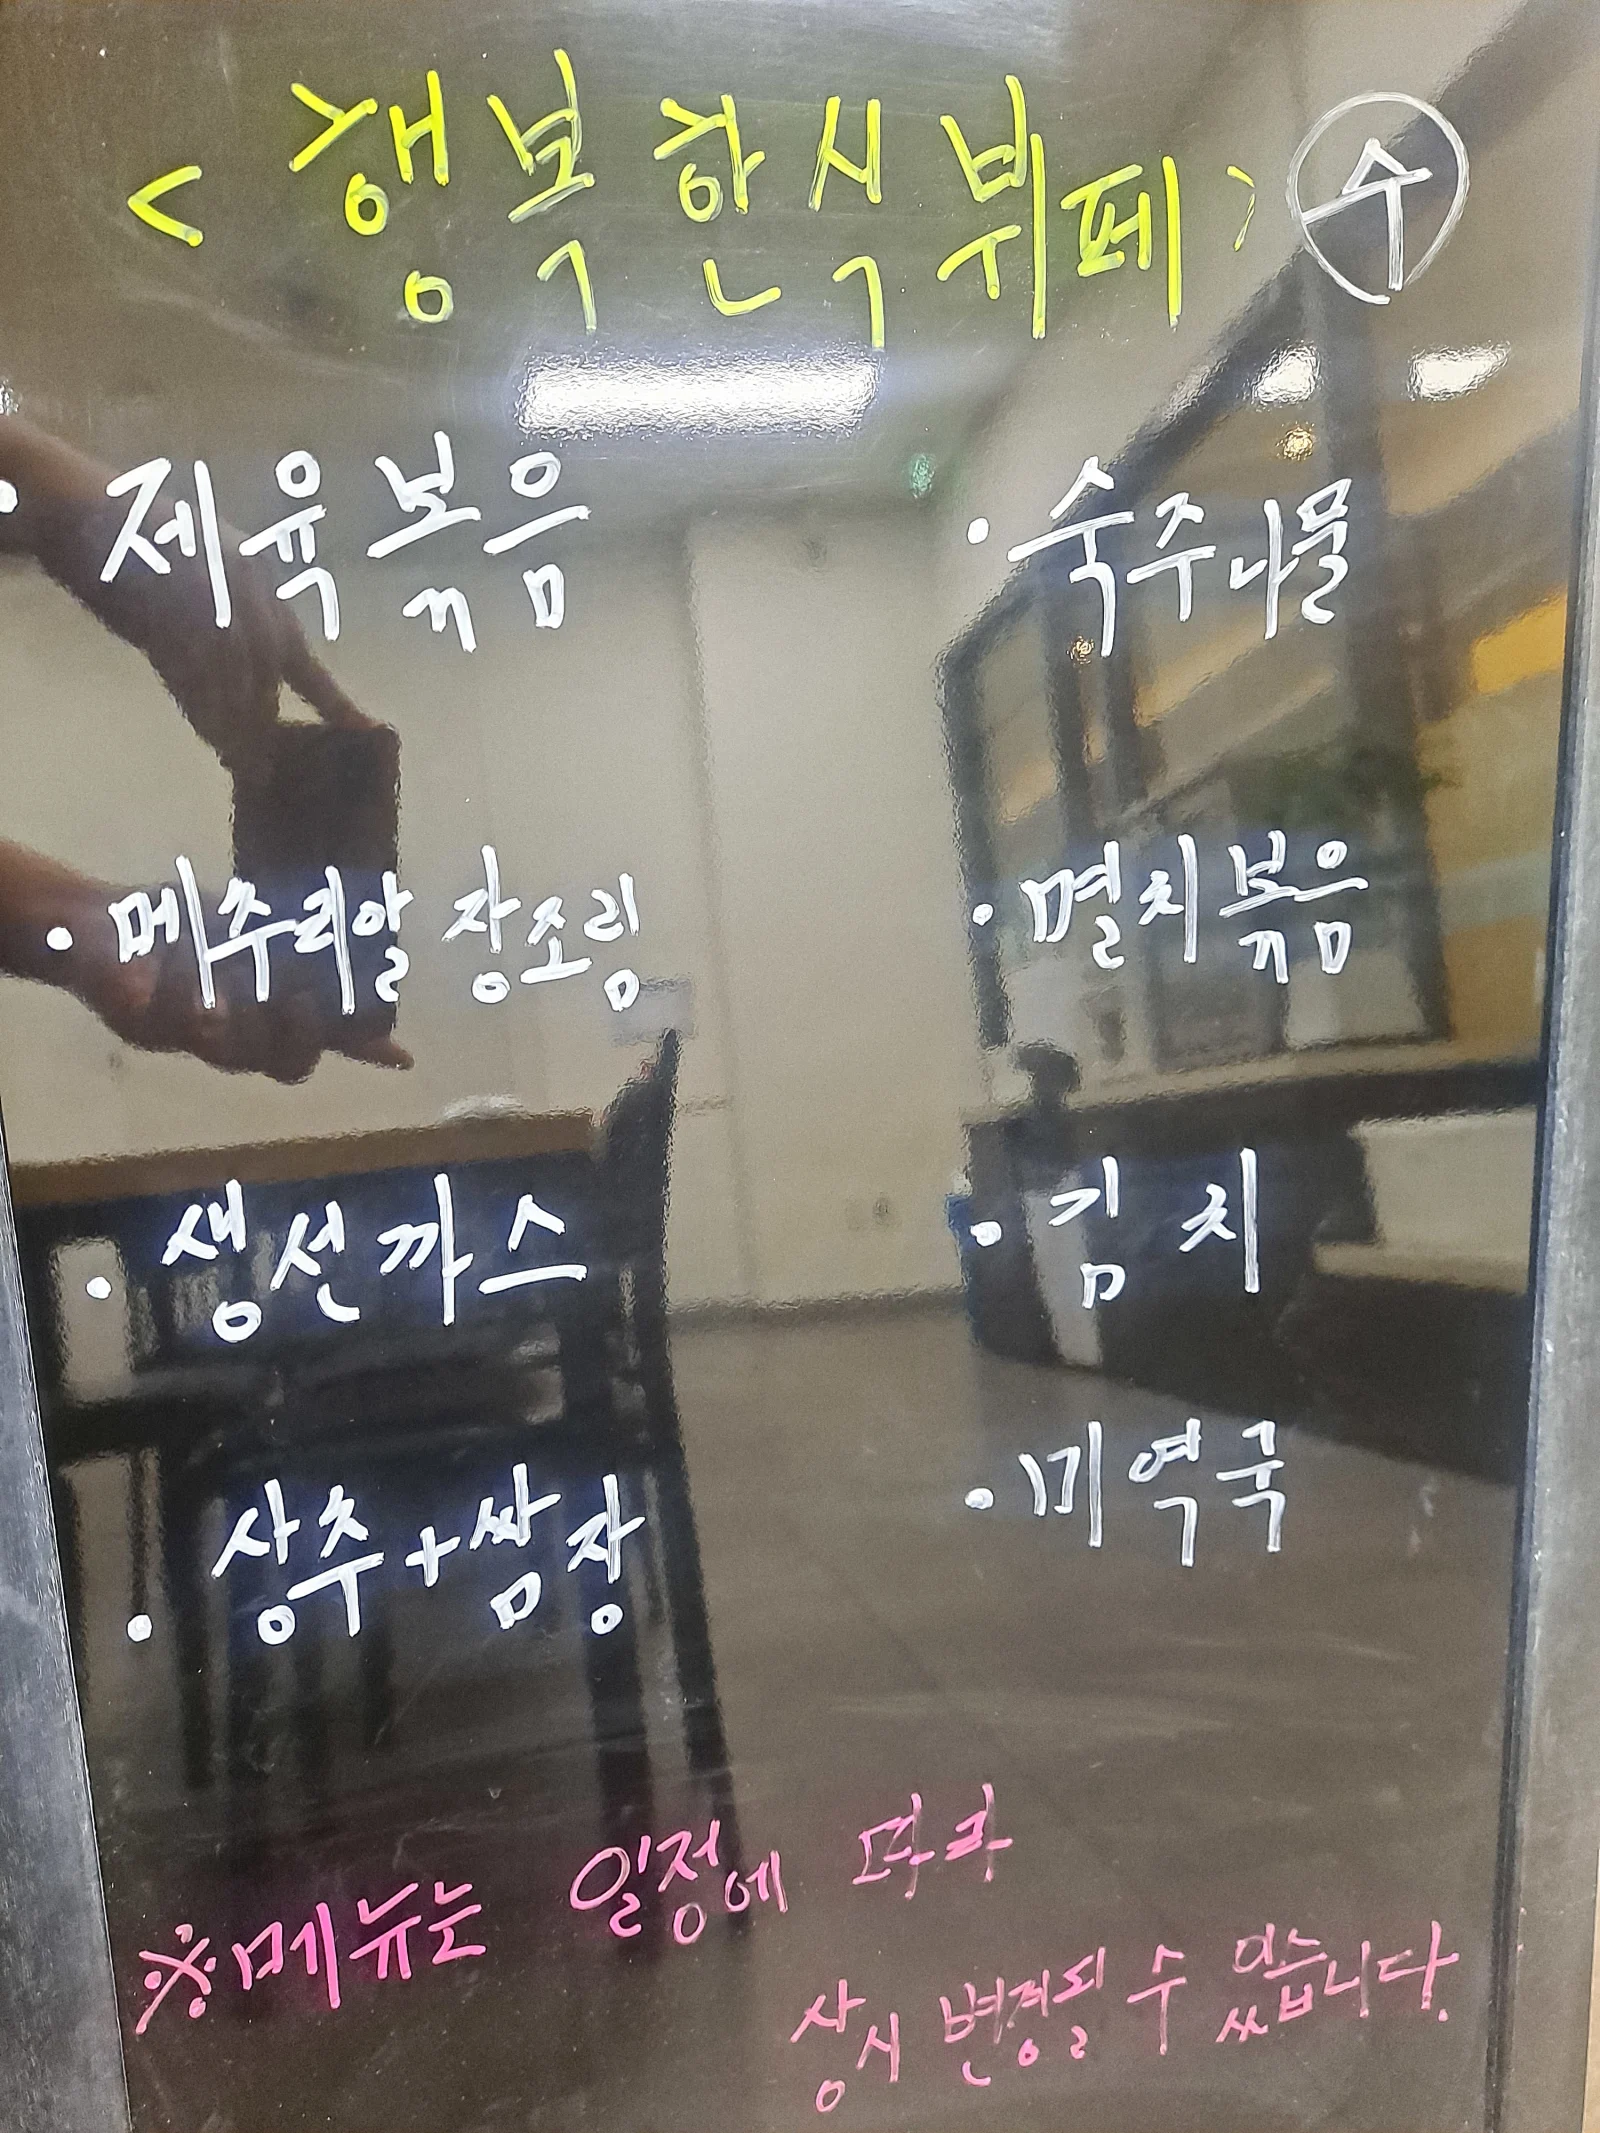 <행복한식뷔페> 수
· 제육볶음
· 숙주나물
· 메추리알 장조림
· 멸치볶음
· 생선까스
· 김치
· 상추+쌈장
· 미역국
※메뉴는 일정에 따라
상시 변경될 수 있습니다.